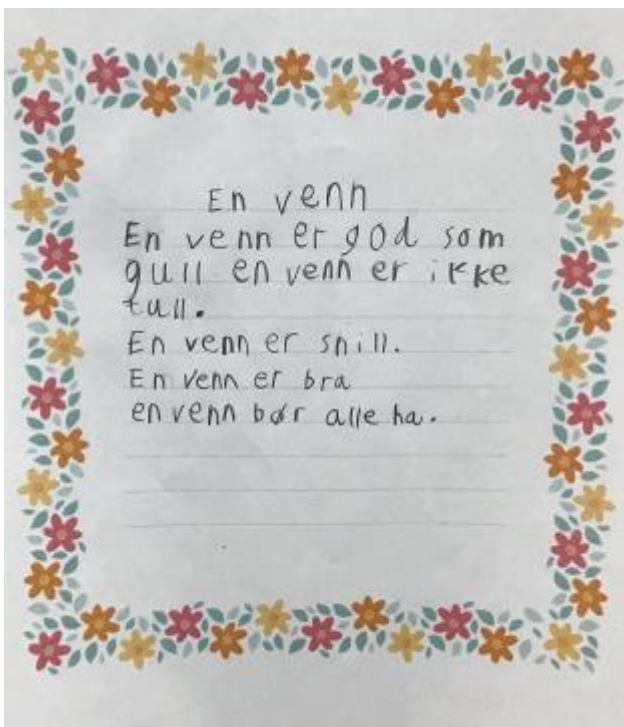 En venn
En venn er god som
gull en venn er ikke
tull.
En venn er snill.
En venn er bra
en venn bør alle ha.